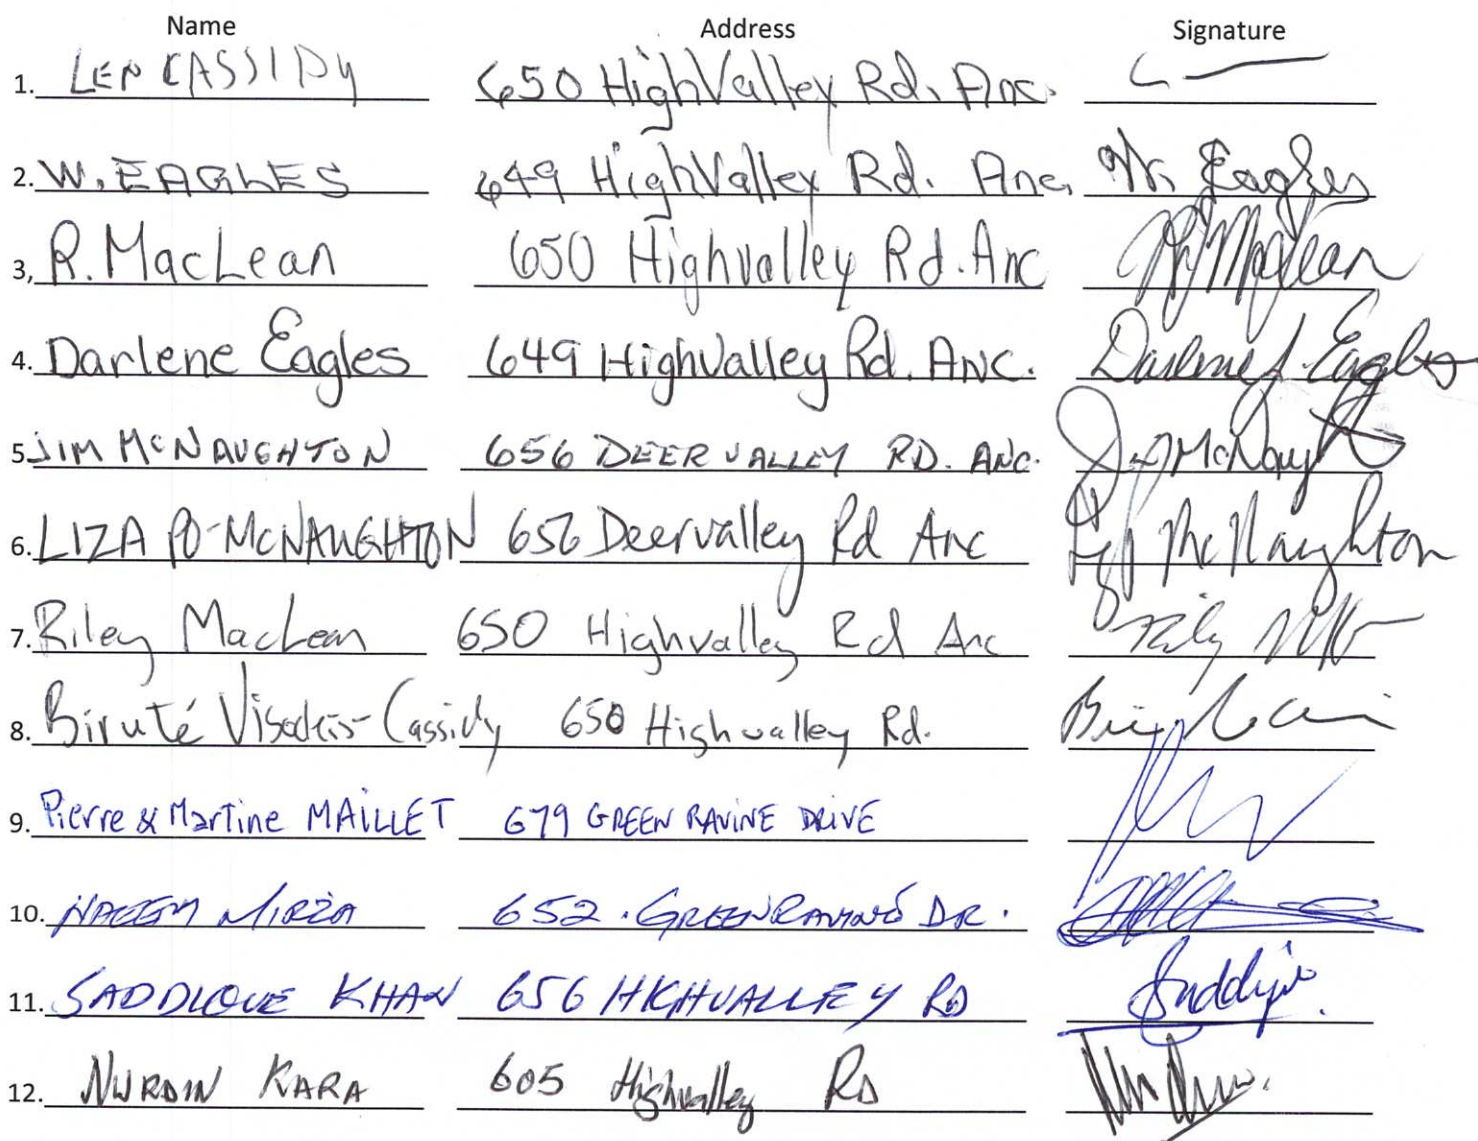 Name Address Signature
1. LEN CASSIDY 650 HighValley Rd. Anc.
2. W. EAGLES 649 HighValley Rd. Anc. W. Eagles
3, R. MacLean 650 Highvalley Rd. Anc MacLean
4. Darlene Eagles 649 HighValley Rd. ANC. Darlene J. Eagles
5. JIM MCNAUGHTON 656 DEERVALLEY RD. ANC. J McNaught
6. LIZA PO-MCNAUGHTON 656 Deervalley Rd Anc McNaughton
7. Riley MacLean 650 Highvalley Rd Anc Riley
8. Biruté Cassidy 650 Highvalley Rd.
9. Pierre & Martine MAILLET 679 GREEN RAVINE DRIVE
10. NAEEM MIRZA 652. GREENRAVINE DR.
11. KHAN 656 HIGHVALLEY RD
12. NURDIN KARA 605 Highvalley RD